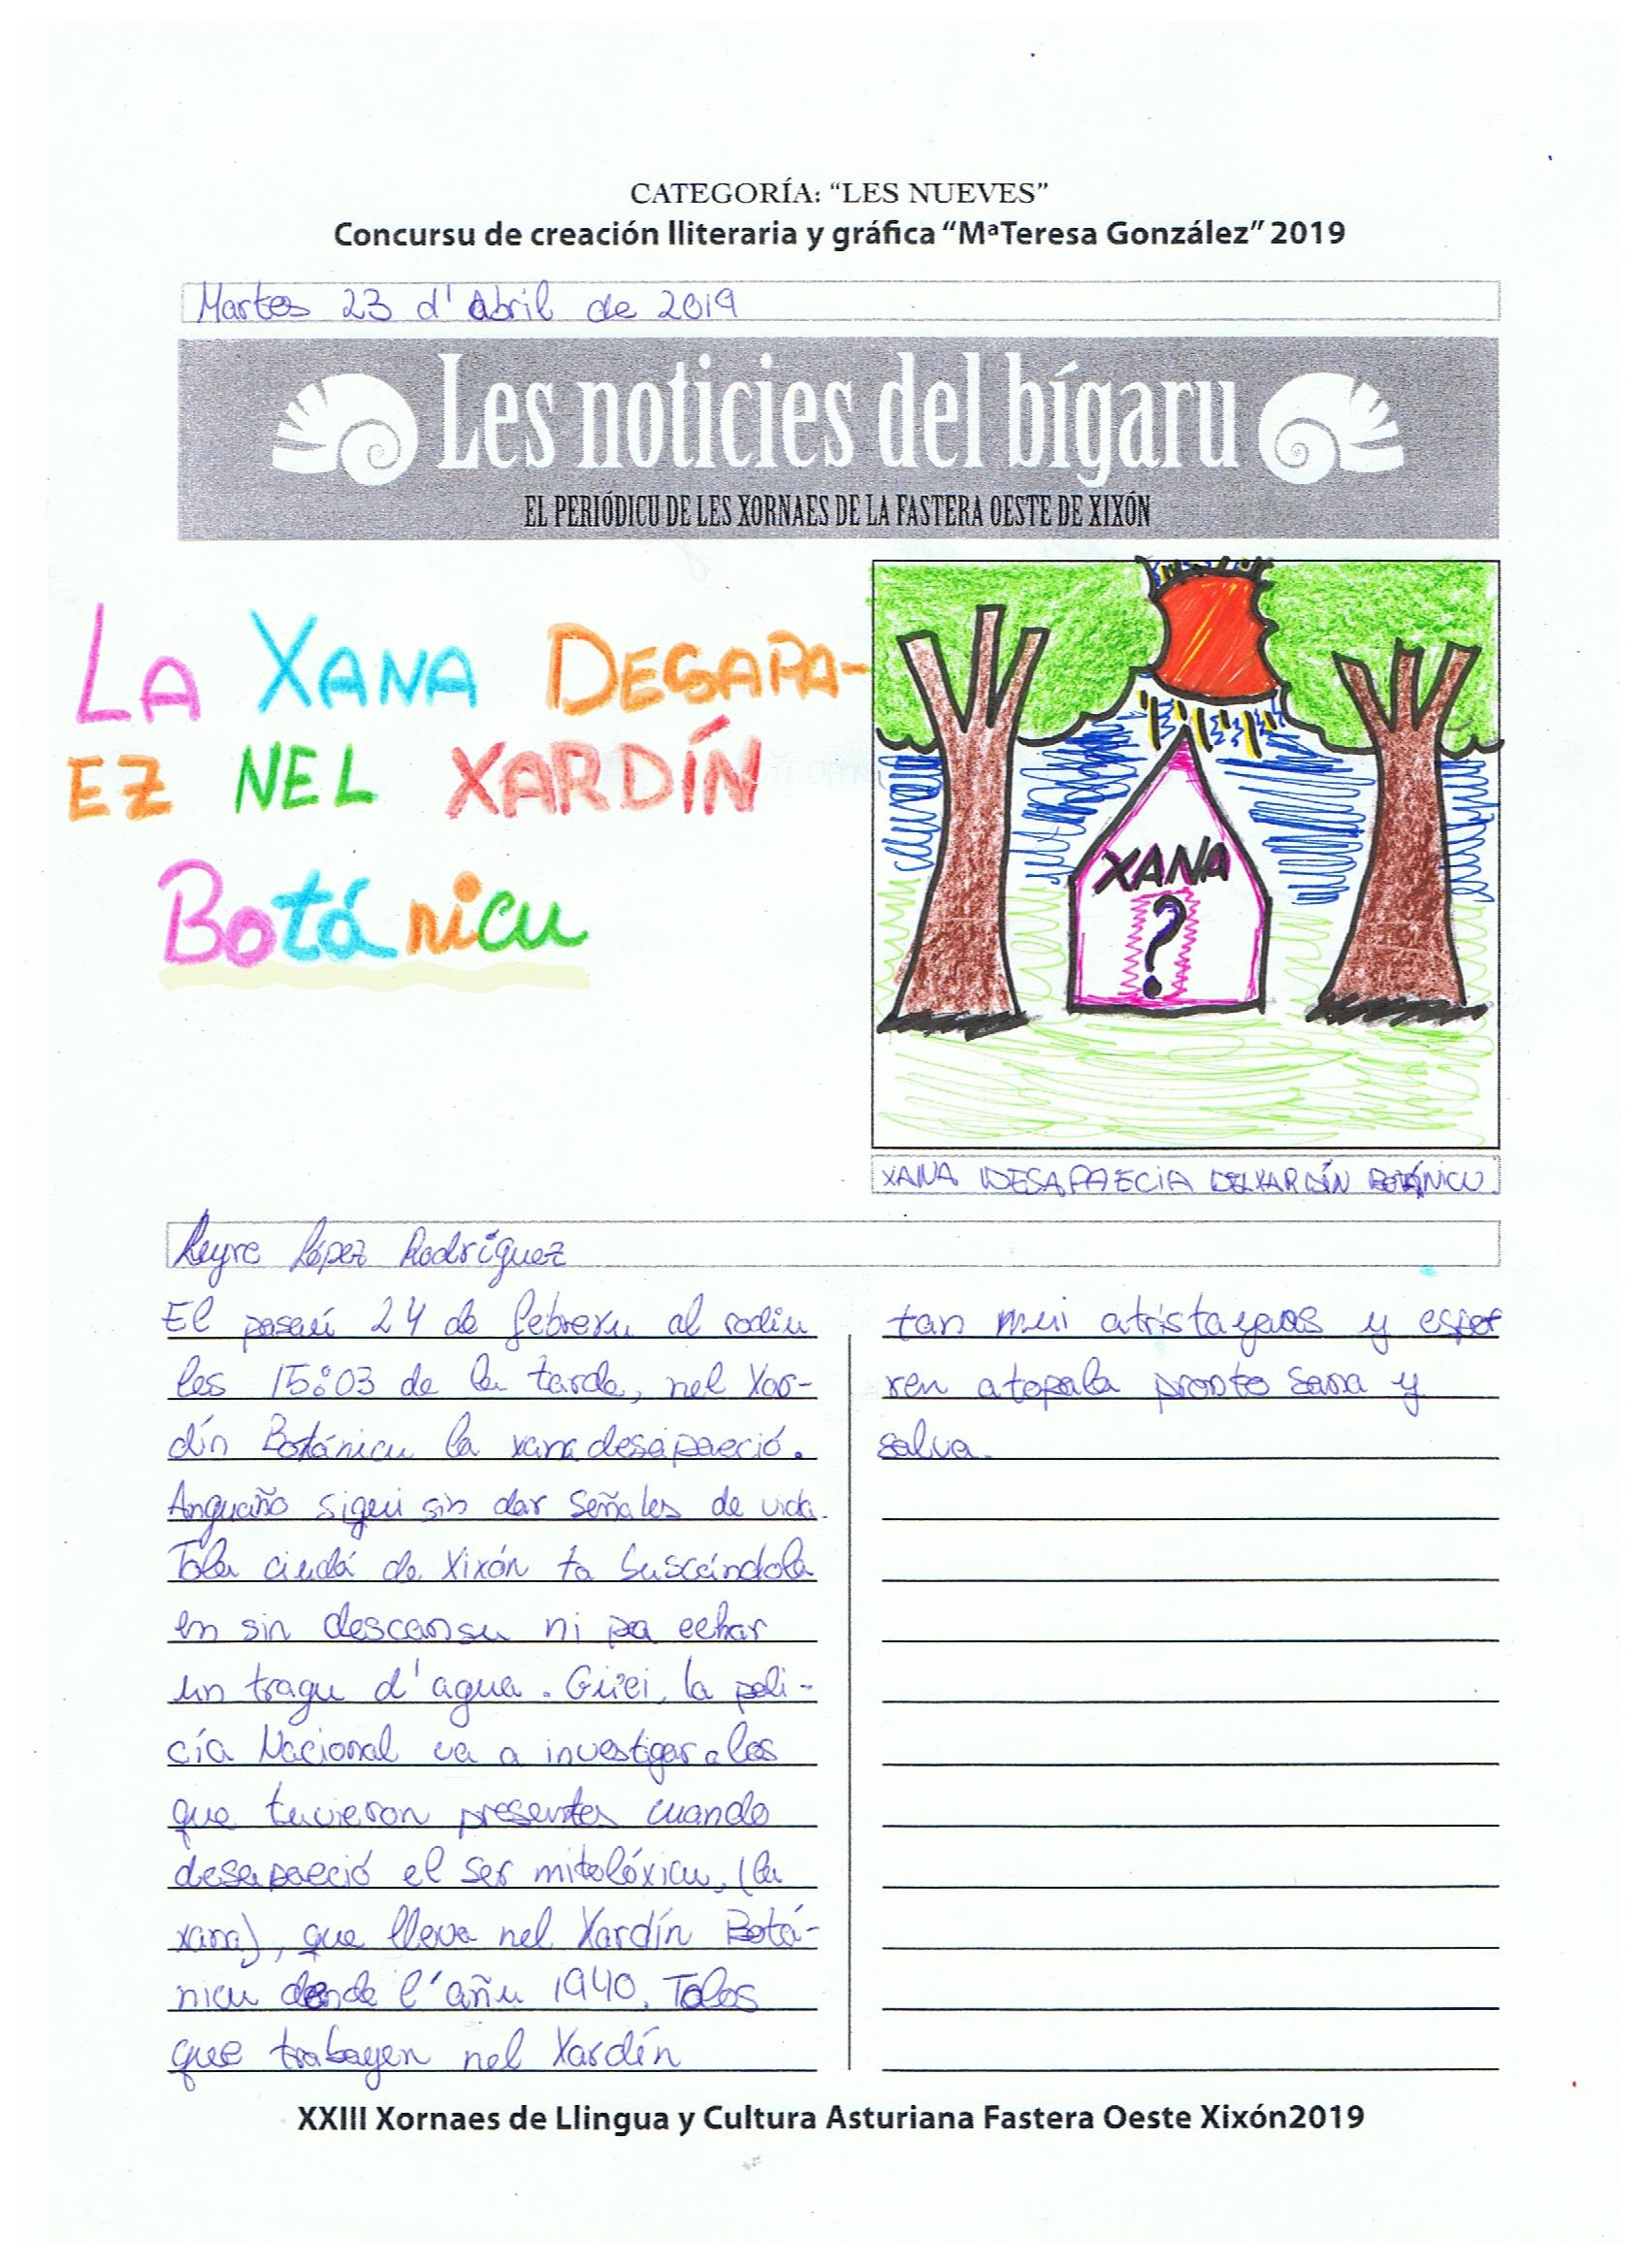 CATEGORÍA: “LES NUEVES”
Concursu de creación lliteraria y gráfica “MªTeresa González” 2019
Martes 23 d'abril de 2019
Les noticies del bígaru
EL PERIÓDICU DE LES XORNAES DE LA FASTERA OESTE DE XIXÓN
LA XANA DESAPA-
EZ NEL XARDÍN
Botánicu
XANA
?
XANA DESAPAECIA DEL XARDÍN BOTÁNICU.
Leyre López Rodríguez
El pasáu 24 de febreru al rodiu
les 15:03 de la tarde, nel Xar-
dín Botánicu la xana desapaeció.
Anguaño sigui sin dar señales de vida.
Tola ciudá de Xixón ta buscándola
en sin descansu ni pa echar
un tragu d'agua. Güei, la poli-
cía Nacional va a investigar a los
que tuvieron presentes cuando
desapaeció el ser mitolóxicu, (la
xana), que lleva nel Xardín Botá-
nicu dende l'añu 1940. Tolos
que trabayen nel Xardín
tan mui atristayaos y espe
ren atopala pronto sana y
salva.
XXIII Xornaes de Llingua y Cultura Asturiana Fastera Oeste Xixón2019